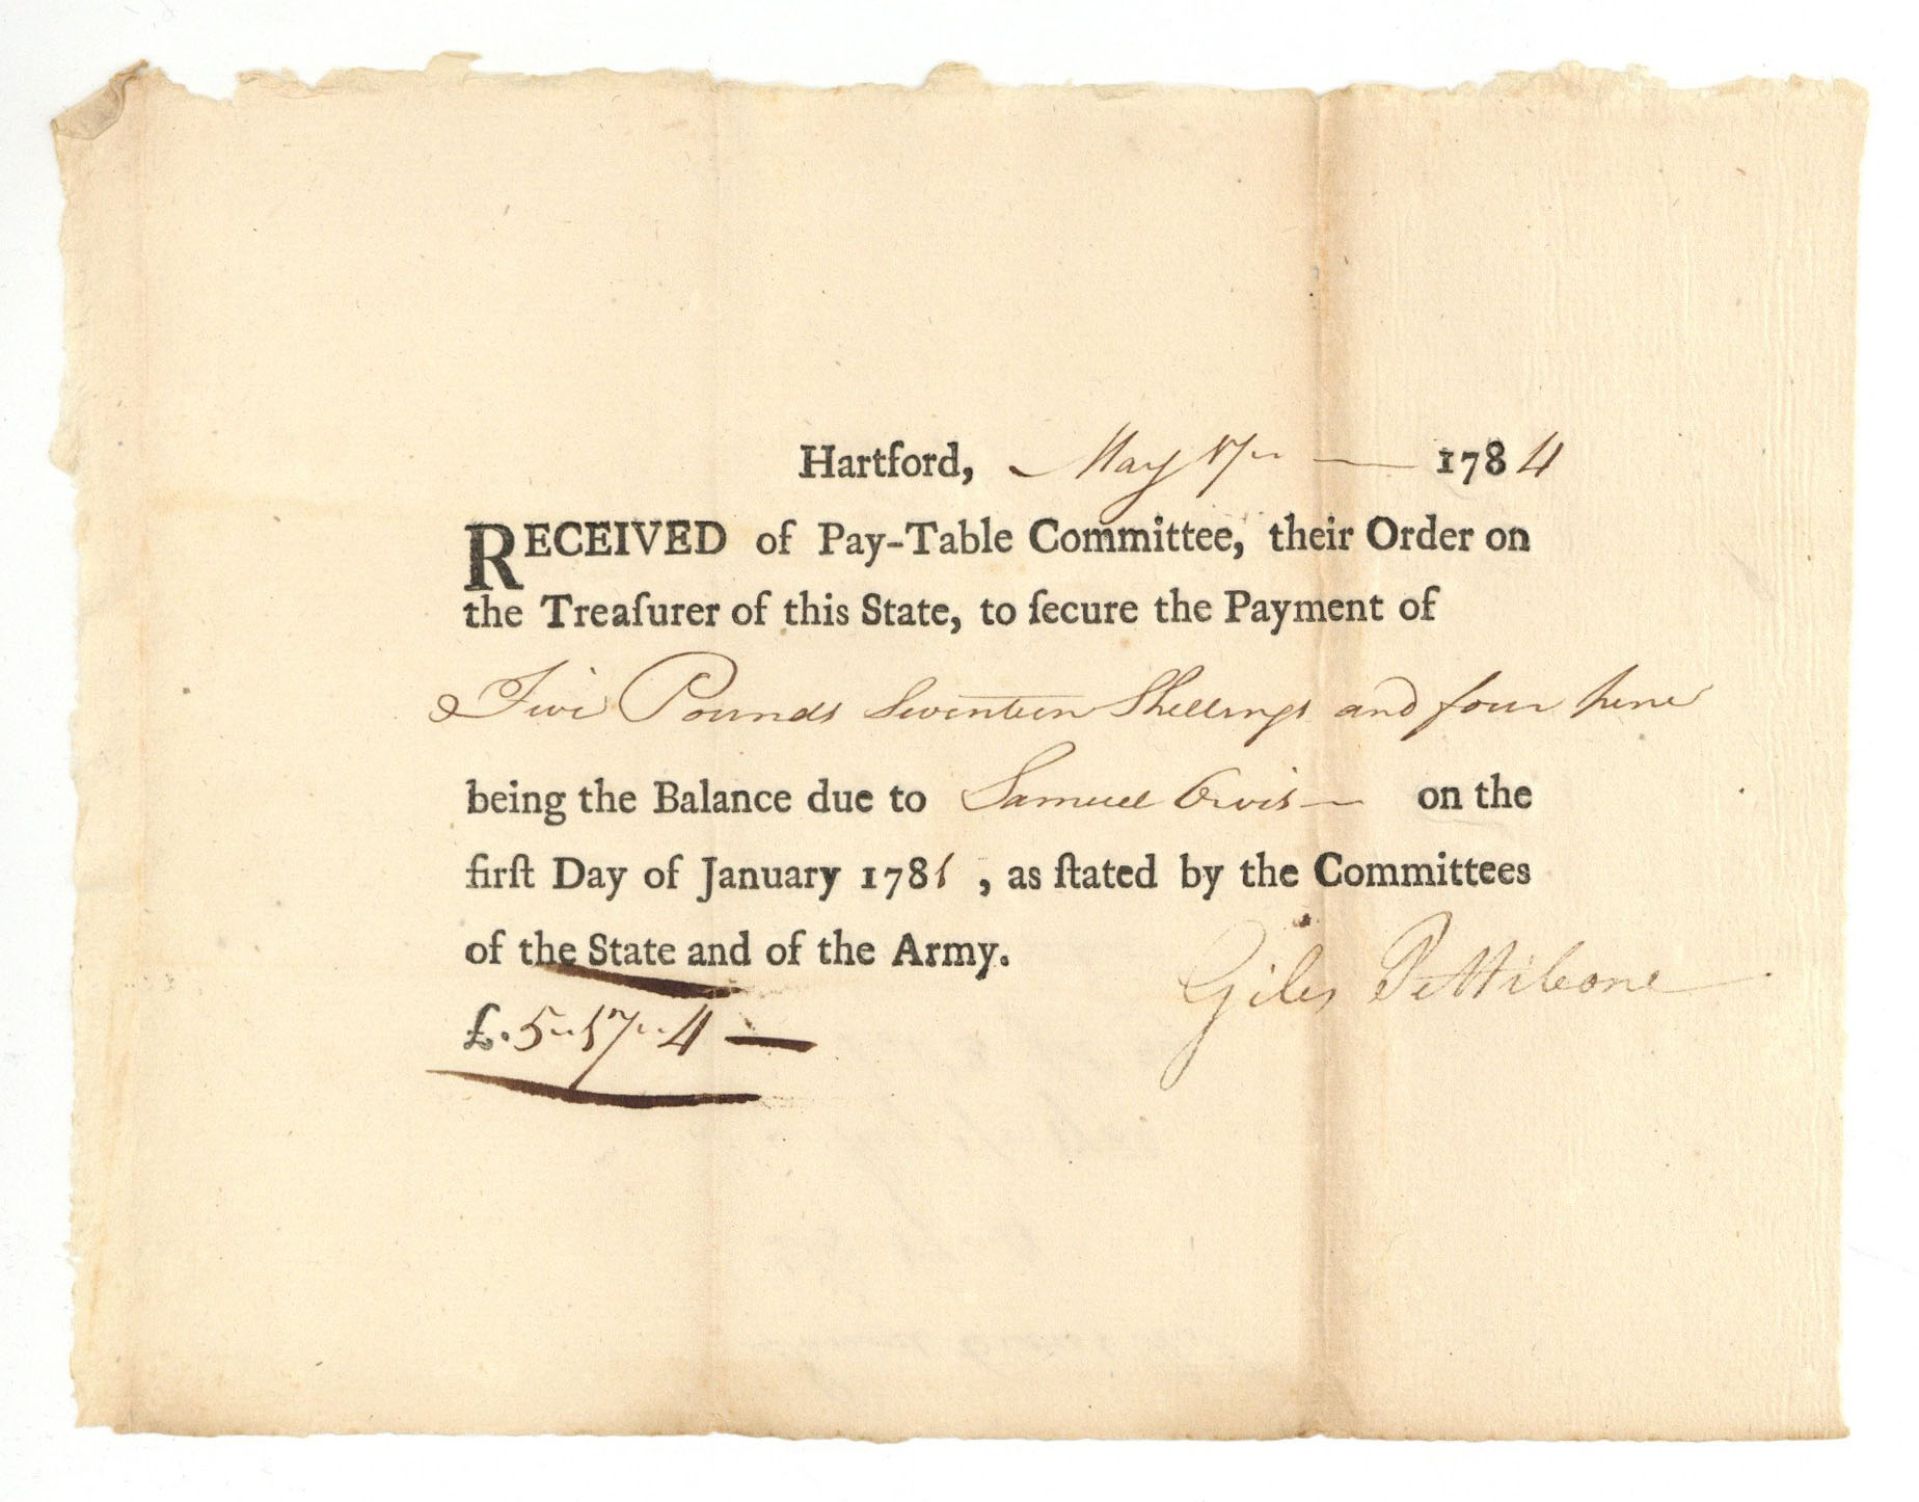 Hartford, May 17 — 1784
RECEIVED of Pay-Table Committee, their Order on
the Treaſurer of this State, to ſecure the Payment of
Five Pounds Seventeen Shillings and four pence
being the Balance due to Samuel Orvis — on the
firſt Day of January 1781 , as ſtated by the Committees
of the State and of the Army.
Giles Pettibone
£. 5..17..4 —